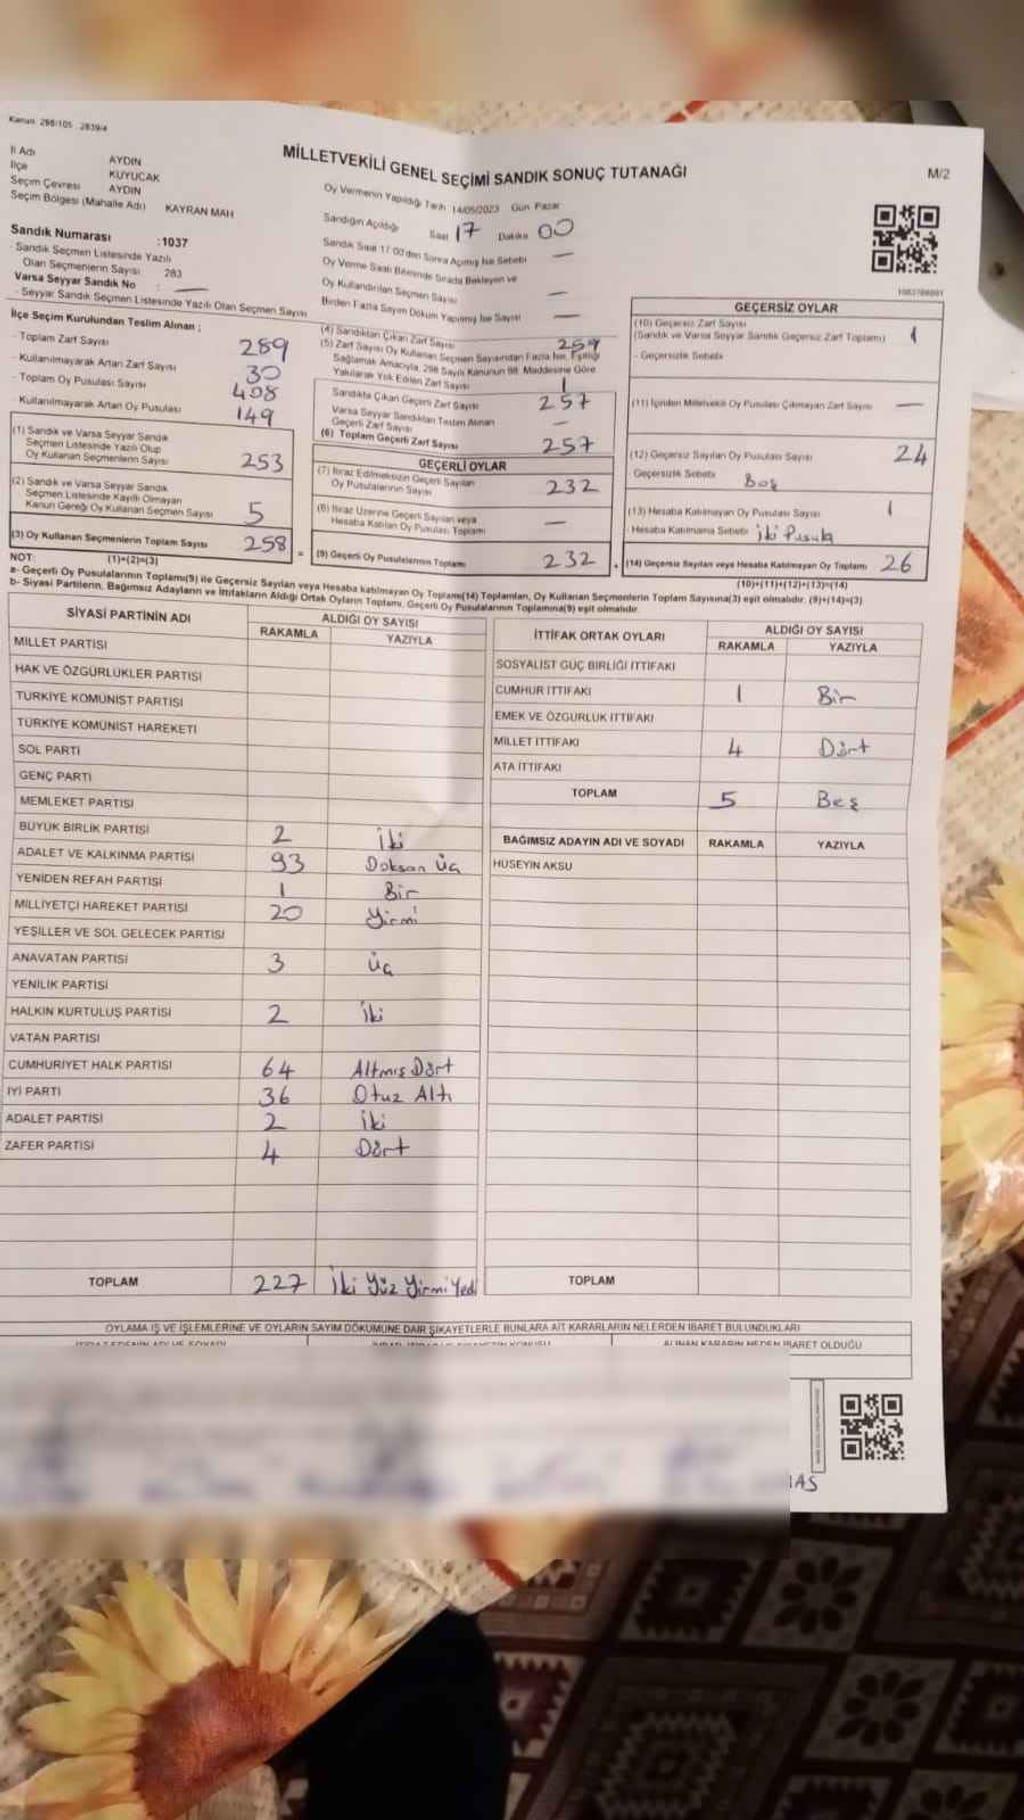 Kanun: 298/105 2839/4
MİLLETVEKİLİ GENEL SEÇİMİ SANDIK SONUÇ TUTANAĞI
M/2
İl Adı AYDIN
İlçe KUYUCAK
Seçim Çevresi AYDIN
Seçim Bölgesi (Mahalle Adı) KAYRAN MAH
Sandık Numarası :1037
- Sandık Seçmen Listesinde Yazılı
Olan Seçmenlerin Sayısı 283
Varsa Seyyar Sandık No : —
- Seyyar Sandık Seçmen Listesinde Yazılı Olan Seçmen Sayısı
Oy Vermenin Yapıldığı Tarih 14/05/2023 Gün Pazar
Sandığın Açıldığı Saat 17 Dakika 00
Sandık Saat 17:00'den Sonra Açılmış İse Sebebi —
Oy Verme Saati Bitiminde Sırada Bekleyen ve
Oy Kullandırılan Seçmen Sayısı —
Birden Fazla Sayım Döküm Yapılmış İse Sayısı —
İlçe Seçim Kurulundan Teslim Alınan :
- Toplam Zarf Sayısı 289
- Kullanılmayarak Artan Zarf Sayısı 30
- Toplam Oy Pusulası Sayısı 408
- Kullanılmayarak Artan Oy Pusulası 149
(1) Sandık ve Varsa Seyyar Sandık
Seçmen Listesinde Yazılı Olup
Oy Kullanan Seçmenlerin Sayısı 253
(2) Sandık ve Varsa Seyyar Sandık
Seçmen Listesinde Kayıtlı Olmayan
Kanun Gereği Oy Kullanan Seçmen Sayısı 5
(3) Oy Kullanan Seçmenlerin Toplam Sayısı 258
(1)+(2)=(3)
(4) Sandıktan Çıkan Zarf Sayısı 259
(5) Zarf Sayısı Oy Kullanan Seçmen Sayısından Fazla İse, Eşitliği
Sağlamak Amacıyla, 298 Sayılı Kanunun 98. Maddesine Göre
Yakılarak Yok Edilen Zarf Sayısı 1
Sandıkta Çıkan Geçerli Zarf Sayısı 257
Varsa Seyyar Sandıktan Teslim Alınan
Geçerli Zarf Sayısı —
(6) Toplam Geçerli Zarf Sayısı 257
GEÇERLİ OYLAR
(7) İtiraz Edilmeksizin Geçerli Sayılan
Oy Pusulalarının Sayısı 232
(8) İtiraz Üzerine Geçerli Sayılan veya
Hesaba Katılan Oy Pusulası Toplamı —
(9) Geçerli Oy Pusulalarının Toplamı 232
GEÇERSİZ OYLAR
(10) Geçersiz Zarf Sayısı
(Sandık ve Varsa Seyyar Sandık Geçersiz Zarf Toplamı) 1
- Geçersizlik Sebebi
(11) İçinden Milletvekili Oy Pusulası Çıkmayan Zarf Sayısı —
(12) Geçersiz Sayılan Oy Pusulası Sayısı 24
Geçersizlik Sebebi Boş
(13) Hesaba Katılmayan Oy Pusulası Sayısı 1
- Hesaba Katılmama Sebebi İki Pusula
(14) Geçersiz Sayılan veya Hesaba Katılmayan Oy Toplamı 26
(10)+(11)+(12)+(13)=(14)
NOT:
a- Geçerli Oy Pusulalarının Toplamı(9) ile Geçersiz Sayılan veya Hesaba katılmayan Oy Toplamı(14) Toplamları, Oy Kullanan Seçmenlerin Toplam Sayısına(3) eşit olmalıdır. (9)+(14)=(3)
b- Siyasi Partilerin, Bağımsız Adayların ve İttifakların Aldığı Ortak Oyların Toplamı, Geçerli Oy Pusulalarının Toplamına(9) eşit olmalıdır.
SİYASİ PARTİNİN ADI ALDIĞI OY SAYISI
RAKAMLA YAZIYLA
MİLLET PARTİSİ
HAK VE ÖZGÜRLÜKLER PARTİSİ
TÜRKİYE KOMÜNİST PARTİSİ
TÜRKİYE KOMÜNİST HAREKETİ
SOL PARTİ
GENÇ PARTİ
MEMLEKET PARTİSİ
BÜYÜK BİRLİK PARTİSİ 2 İki
ADALET VE KALKINMA PARTİSİ 93 Doksan Üç
YENİDEN REFAH PARTİSİ 1 Bir
MİLLİYETÇİ HAREKET PARTİSİ 20 Yirmi
YEŞİLLER VE SOL GELECEK PARTİSİ
ANAVATAN PARTİSİ 3 Üç
YENİLİK PARTİSİ
HALKIN KURTULUŞ PARTİSİ 2 İki
VATAN PARTİSİ
CUMHURİYET HALK PARTİSİ 64 Altmış Dört
İYİ PARTİ 36 Otuz Altı
ADALET PARTİSİ 2 İki
ZAFER PARTİSİ 4 Dört
TOPLAM 227 İki Yüz Yirmi Yedi
İTTİFAK ORTAK OYLARI ALDIĞI OY SAYISI
RAKAMLA YAZIYLA
SOSYALİST GÜÇ BİRLİĞİ İTTİFAKI
CUMHUR İTTİFAKI 1 Bir
EMEK VE ÖZGÜRLÜK İTTİFAKI
MİLLET İTTİFAKI 4 Dört
ATA İTTİFAKI
TOPLAM 5 Beş
BAĞIMSIZ ADAYIN ADI VE SOYADI RAKAMLA YAZIYLA
HÜSEYİN AKSU
TOPLAM
OYLAMA İŞ VE İŞLEMLERİNE VE OYLARIN SAYIM DÖKÜMÜNE DAİR ŞİKAYETLERLE BUNLARA AİT KARARLARIN NELERDEN İBARET BULUNDUKLARI
ALINAN KARARIN NEDEN İBARET OLDUĞU